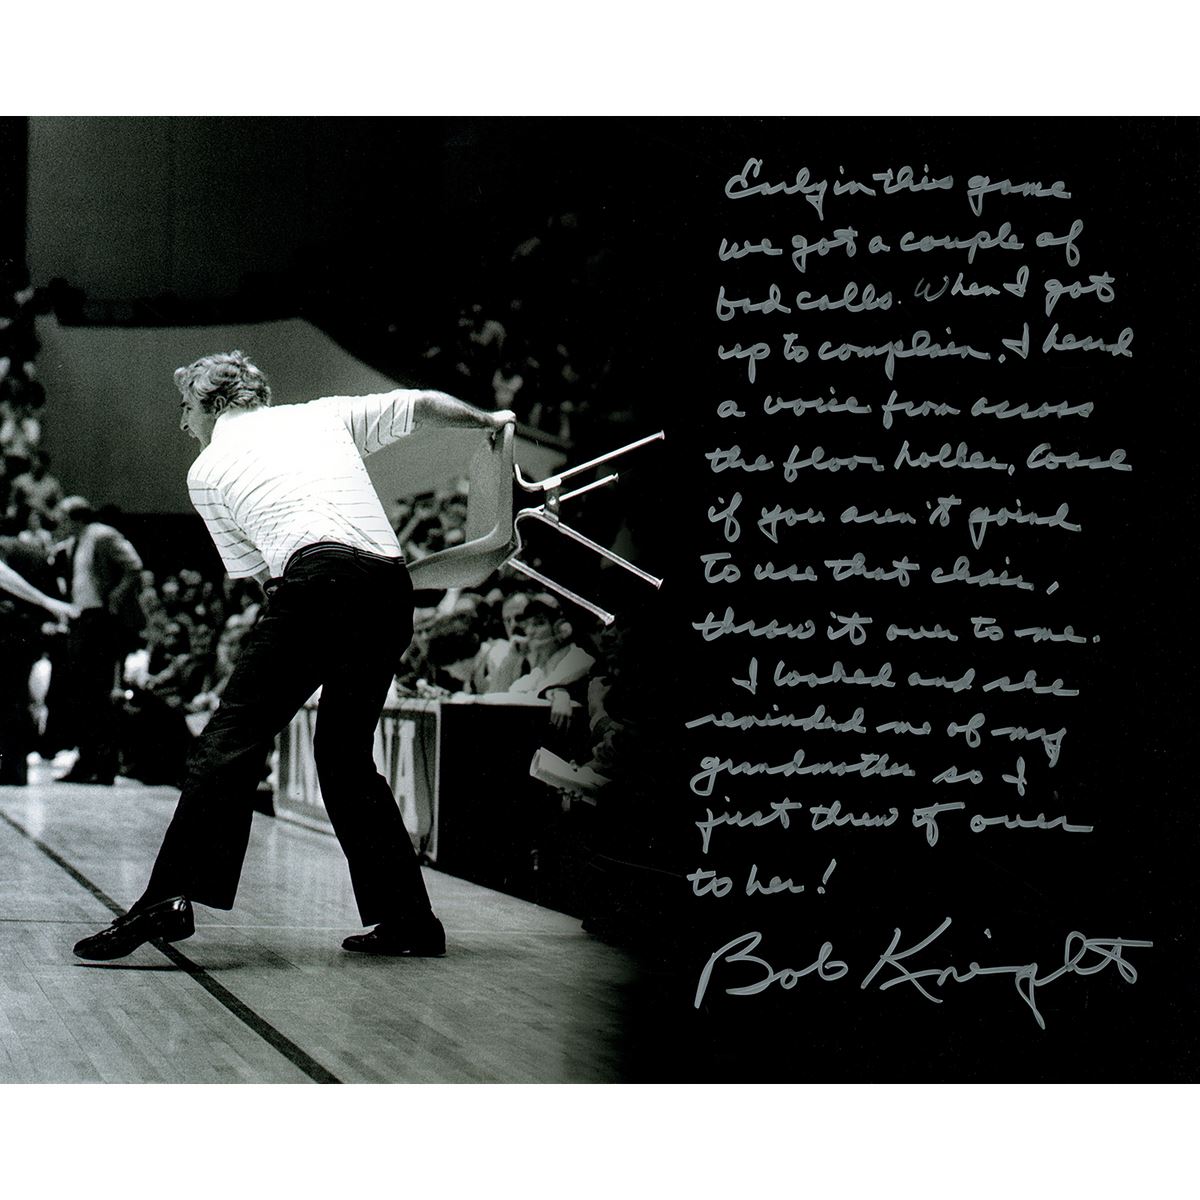 Early in this game
we got a couple of
bad calls. When I got
up to complain, I heard
a voice from across
the floor holler, Coach
if you aren't goind
to use that chair,
throw it over to me.
I looked and she
reminded me of my
grandmother so I
just threw it over
to her!
Bob Knight